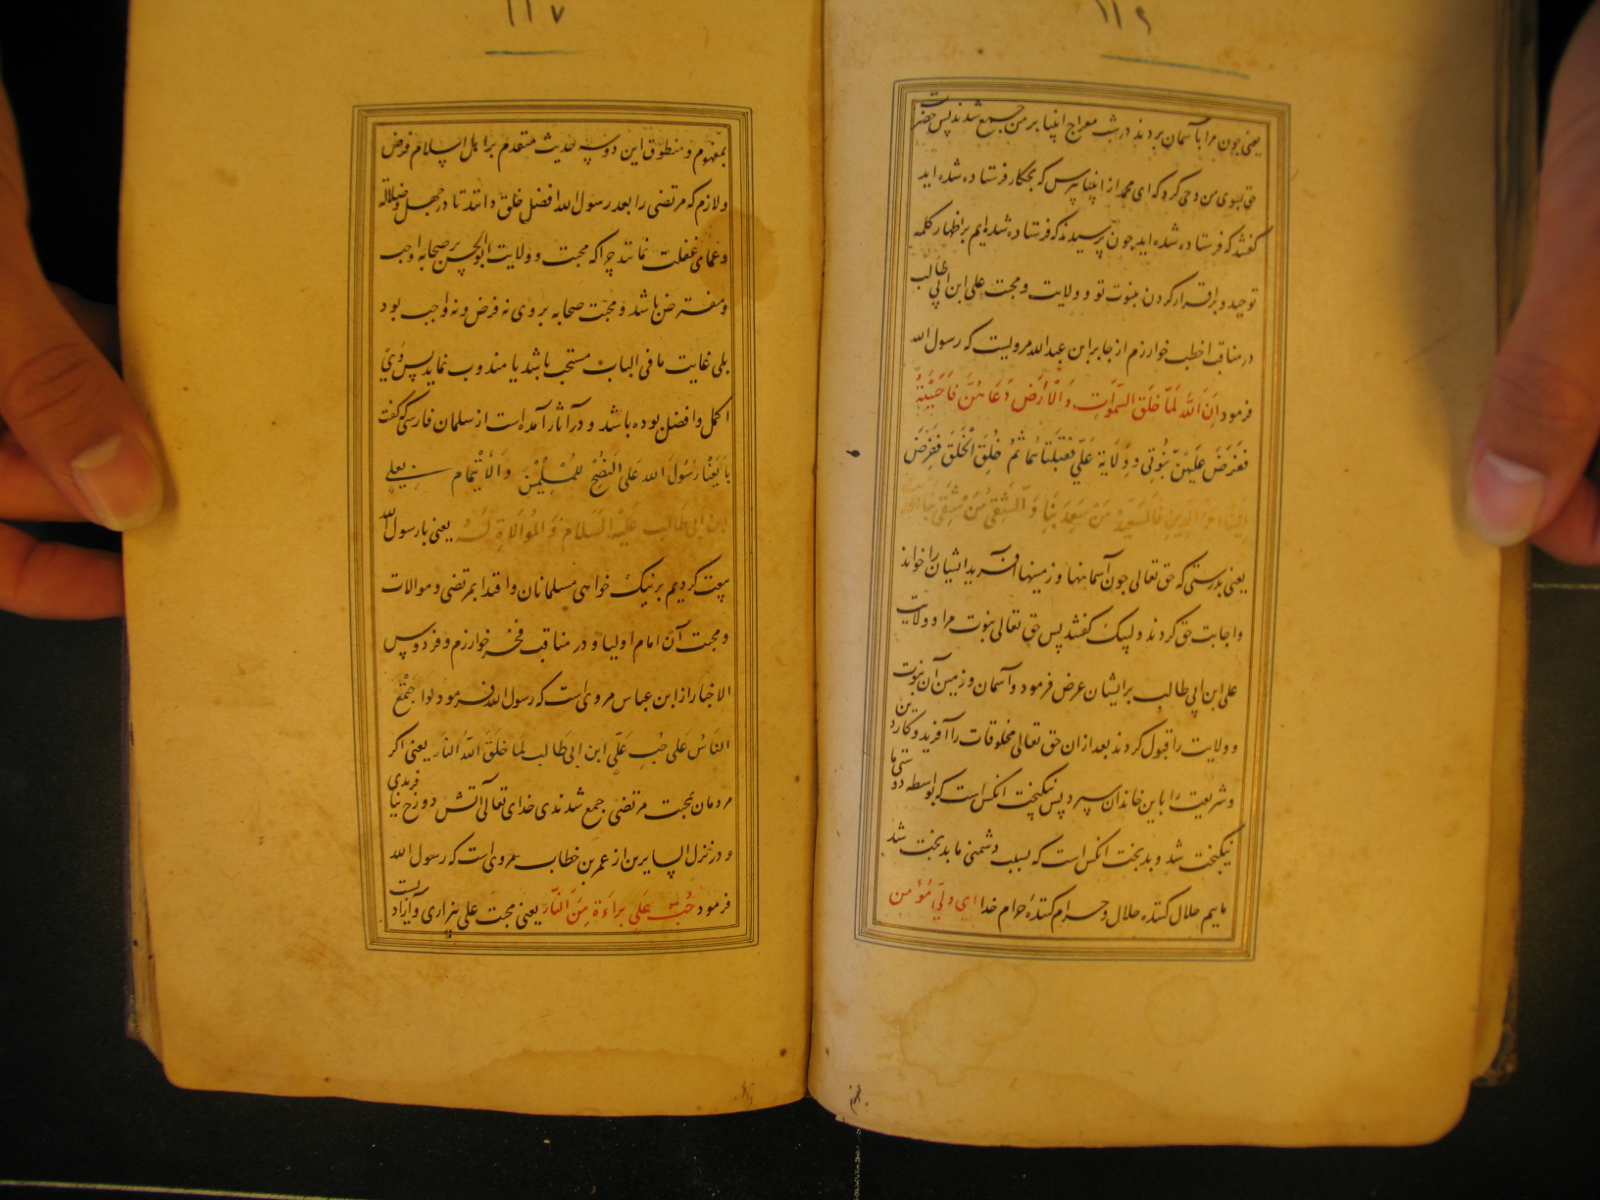 ۱۱۶
یعنی چون مرا باسمان بردند در شب معراج انبیا بر من جمع شدند پس حضرت
حق بسوی من وحی کرد که ای محمد از انبیا بپرس که بچکار فرستاده شده اید
گفتند که فرستاده شده اید چون پرسیدند که فرستاده شده ایم بر اظهار کلمه
توحید و بر اقرار کردن بنبوت تو و ولایت و محبت علی ابن ابی طالب
در مناقب اخطب خوارزم از جابر ابن عبد الله مرویست که رسول الله
فرمود ان الله لما خلق السموات والارض دعاهن فاجبنه
فعرض علیهن نبوتی و ولایة علی فقبلتاهما ثم خلق الخلق ففوض
الینا امر الدین فالسعید من سعد بنا و الشقی من شقی بنا
یعنی بدرستی که حق تعالی چون آسمانها و زمینها آفرید ایشان را خواند
و اجابت حق کردند و لبیک گفتند پس حق تعالی نبوت مرا و ولایت
علی ابن ابی طالب بر ایشان عرض فرمود و آسمان و زمین آن نبوت
و ولایت را قبول کردند بعد از ان حق تعالی مخلوقات را آفرید و کار دین
و شریعت را باین خاندان سپرد پس نیکبخت انکس است که بواسطه دوستی ما
نیکبخت شد و بدبخت انکس است که بسبب دشمنی ما بدبخت شد
ماییم حلال کننده حلال و حرام کننده حرام خدا ای ولی مؤمن
۱۱۷
بمفهوم و منطوق این دو سه حدیث متقدم بر اهل اسلام فرض
و لازم که مرتضی را بعد رسول الله افضل خلق دانند تا در جهل و ضلاله
و عمای غفلت نمانند چرا که محبت و ولایت ابو الحسن بر صحابه واجب
و مفترض باشد و محبت صحابه بر وی نه فرض و نه واجب بود
بلی غایت ما فی الباب مستحب باشد یا مندوب نماید پس وی
اکمل و افضل بوده باشد و در آثار آمده است از سلمان فارسی که گفت
بایعنا رسول الله علی النصح للمسلمین والائتمام بعلی
ابن ابی طالب علیه السلام والموالاة له یعنی با رسول الله
بیعت کردیم بر نیک خواهی مسلمانان و اقتدا بمرتضی و موالات
و محبت آن امام اولیا و در مناقب فخر خوارزم و فردوس
الاخبار از ابن عباس مروی است که رسول الله فرمود لو اجتمع
الناس علی حب علی ابن ابی طالب لما خلق الله النار یعنی اگر
مردمان بمحبت مرتضی جمع شدندی خدای تعالی آتش دوزخ نیافریدی
و در نزل السایرین از عمر بن خطاب مروی است که رسول الله
فرمود حب علی براءة من النار یعنی محبت علی بیزاری و آزادیست